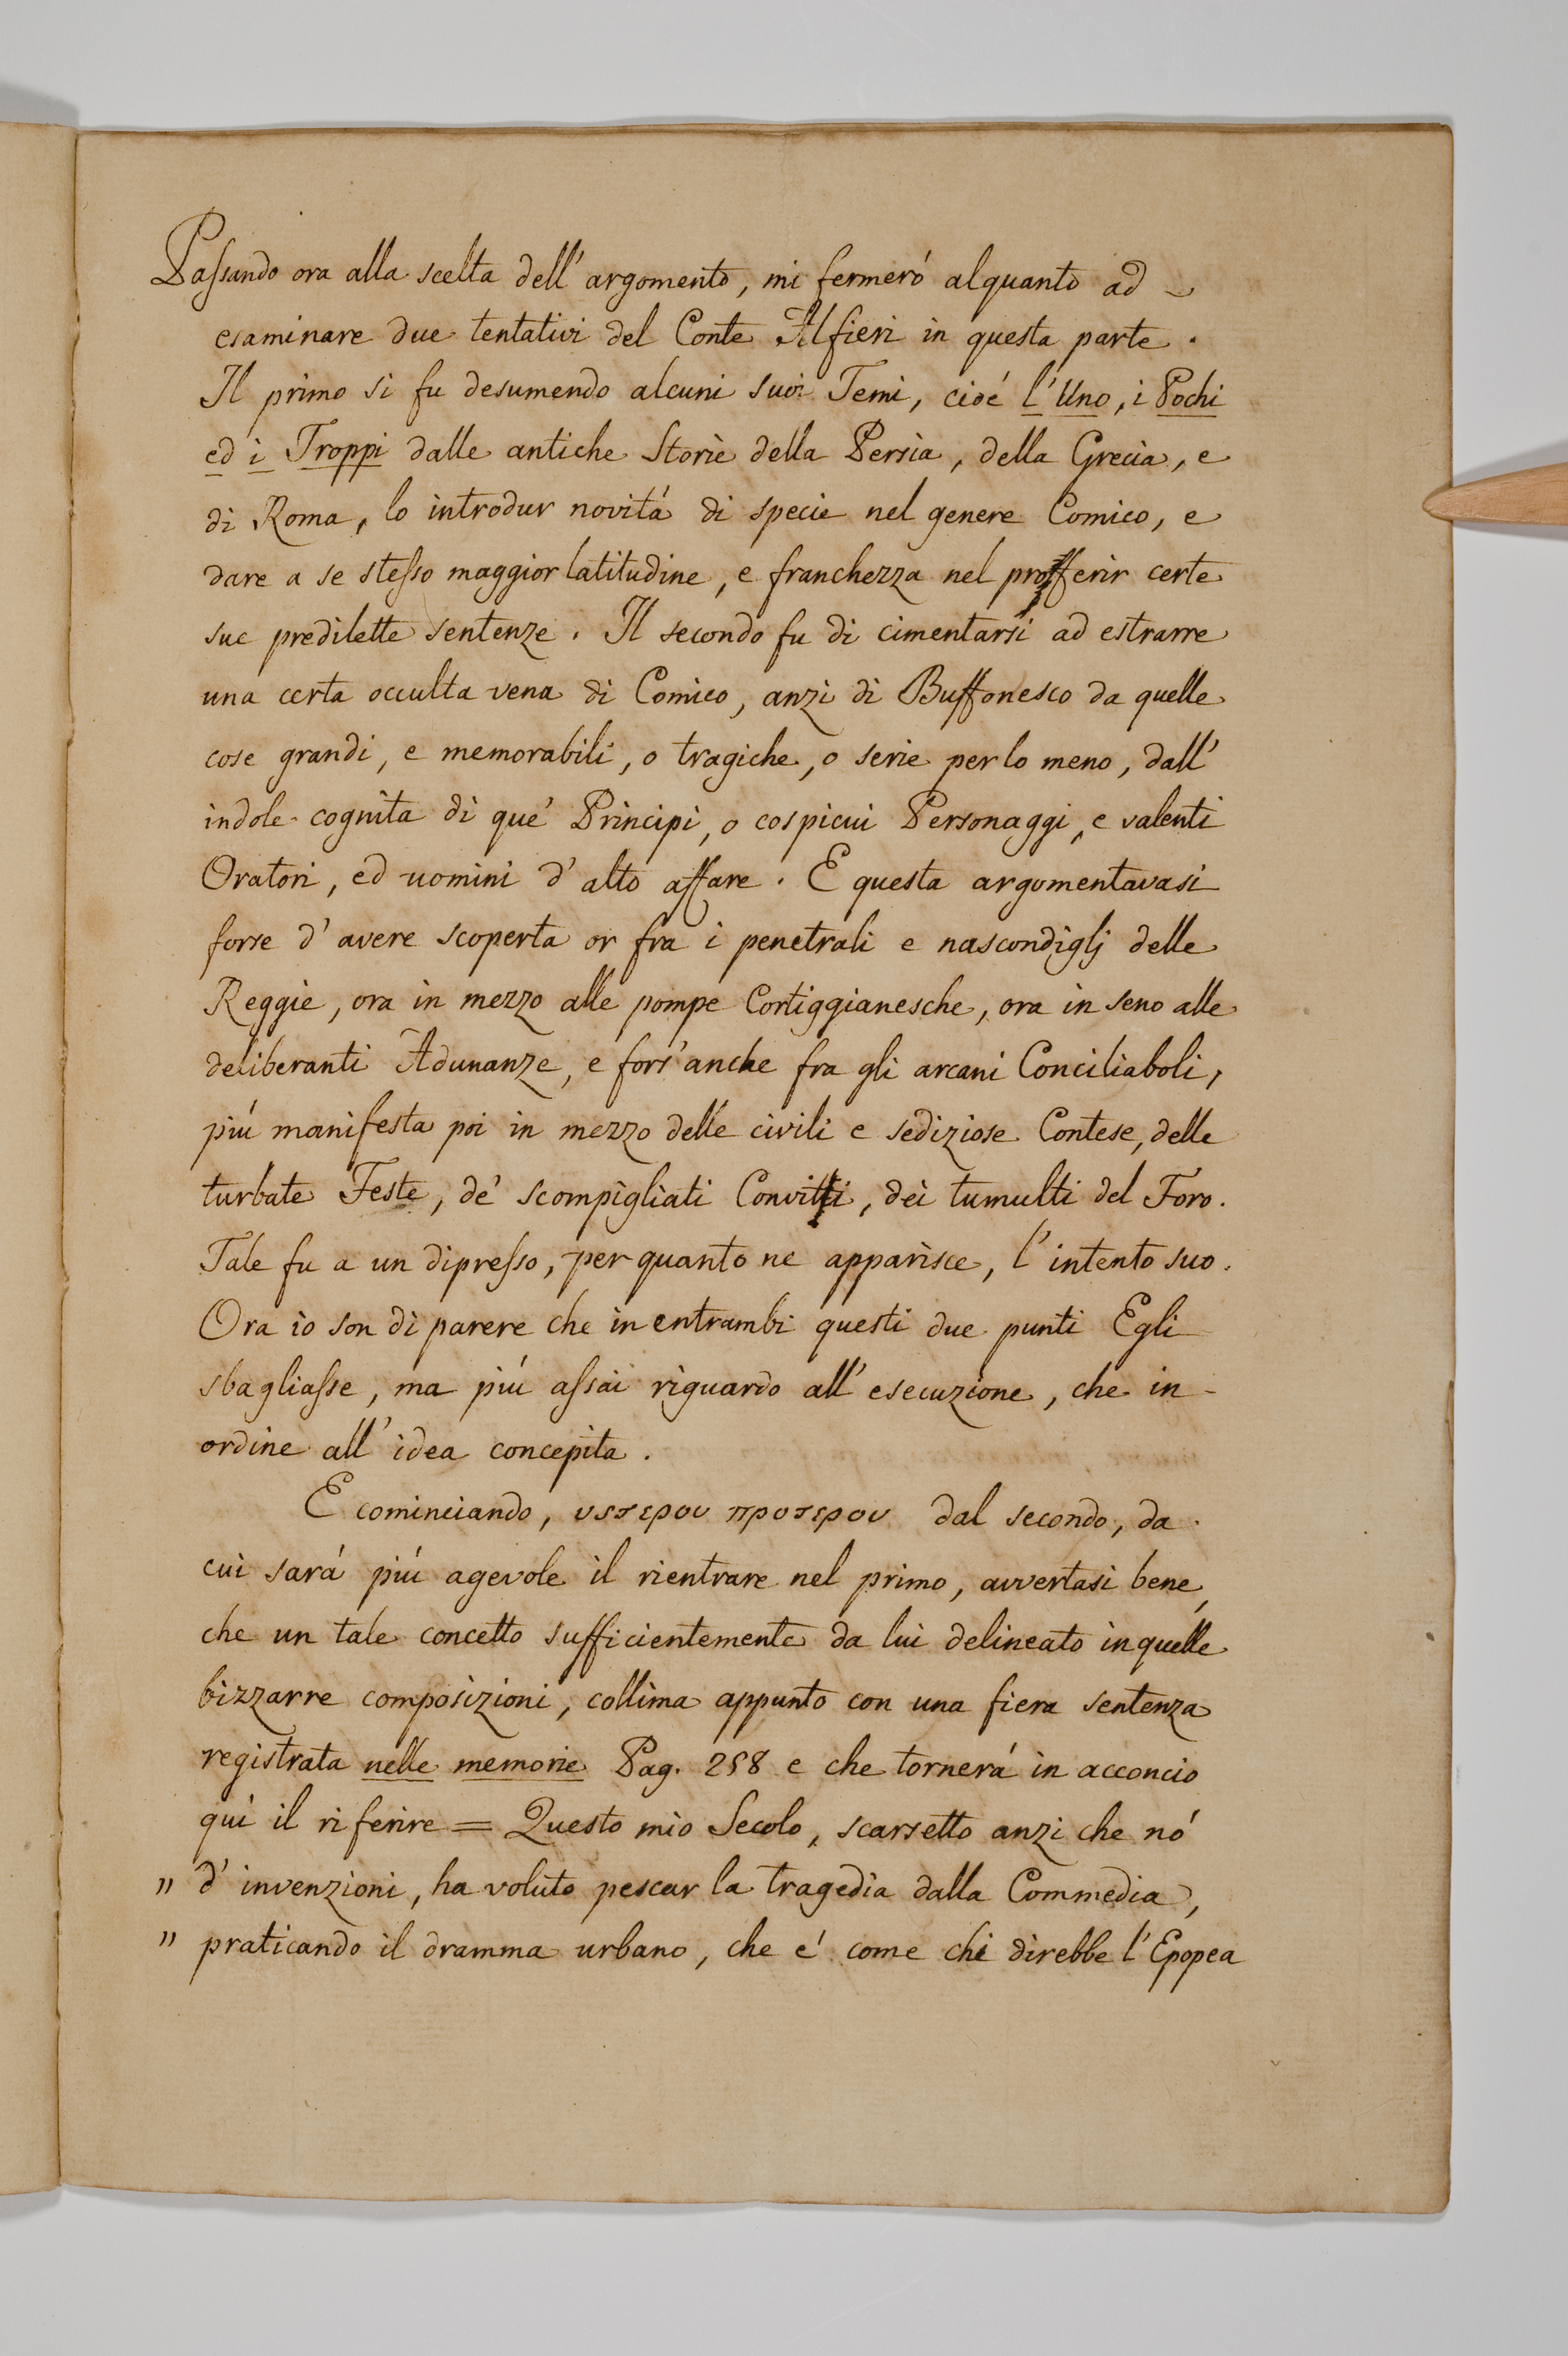 Passando ora alla scelta dell' argomento, mi fermeró alquanto ad
esaminare due tentativi del Conte Alfieri in questa parte.
Il primo si fu desumendo alcuni suoi Temi, cioé l'Uno, i Pochi
ed i Troppi dalle antiche Storie della Persia, della Grecia, e
di Roma, lo introdur novitá di specie nel genere Comico, e
dare a se stesso maggior latitudine, e franchezza nel profferir certe
sue predilette sentenze. Il secondo fu di cimentarsi ad estrarre
una certa occulta vena di Comico, anzi di Buffonesco da quelle
cose grandi, e memorabili, o tragiche, o serie per lo meno, dall'
indole cognita di que' Principi, o cospicui Personaggi, e valenti
Oratori, ed uomini d' alto affare. E questa argomentavasi
forse d' avere scoperta or fra i penetrali e nascondiglj delle
Reggie, ora in mezzo alle pompe Cortiggianesche, ora in seno alle
deliberanti Adunanze, e fors' anche fra gli arcani Conciliaboli,
piú manifesta poi in mezzo delle civili e sediziose Contese, delle
turbate Feste, de' scompigliati Convitti, dei tumulti del Foro.
Tale fu a un dipresso, per quanto ne apparisce, l' intento suo.
Ora io son di parere che in entrambi questi due punti Egli
sbagliasse, ma piú assai riguardo all' esecuzione, che in-
ordine all' idea concepita.
E cominciando, υστερου προτερου dal secondo, da
cui sará piú agevole il rientrare nel primo, avvertasi bene,
che un tale concetto sufficientemente da lui delineato in quelle
bizzarre composizioni, collima appunto con una fiera sentenza
registrata nelle memorie Pag. 258 e che tornerá in acconcio
qui il riferire = Questo mio Secolo, scarsetto anzi che nó
" d' invenzioni, ha voluto pescar la tragedia dalla Commedia,
" praticando il dramma urbano, che é come chi direbbe l' Epopea